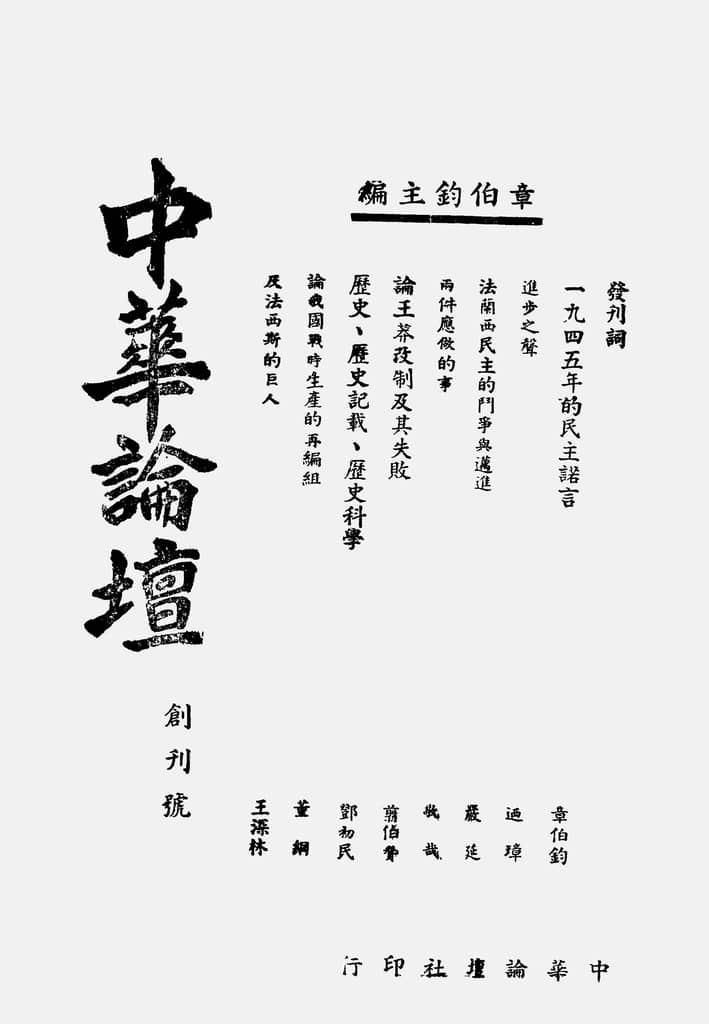 章伯鈞主編
發刊詞
一九四五年的民主諾言
進步之聲
法蘭西民主的鬥爭與邁進
兩件應做的事
論王莽改制及其失敗
歷史、歷史記載、歷史科學
論我國戰時生產的再編組
反法西斯的巨人
章伯鈞
迺璋
嚴延
哉
翦伯贊
鄧初民
董綱
王深林
中華論壇
創刊號
中華論壇社印行